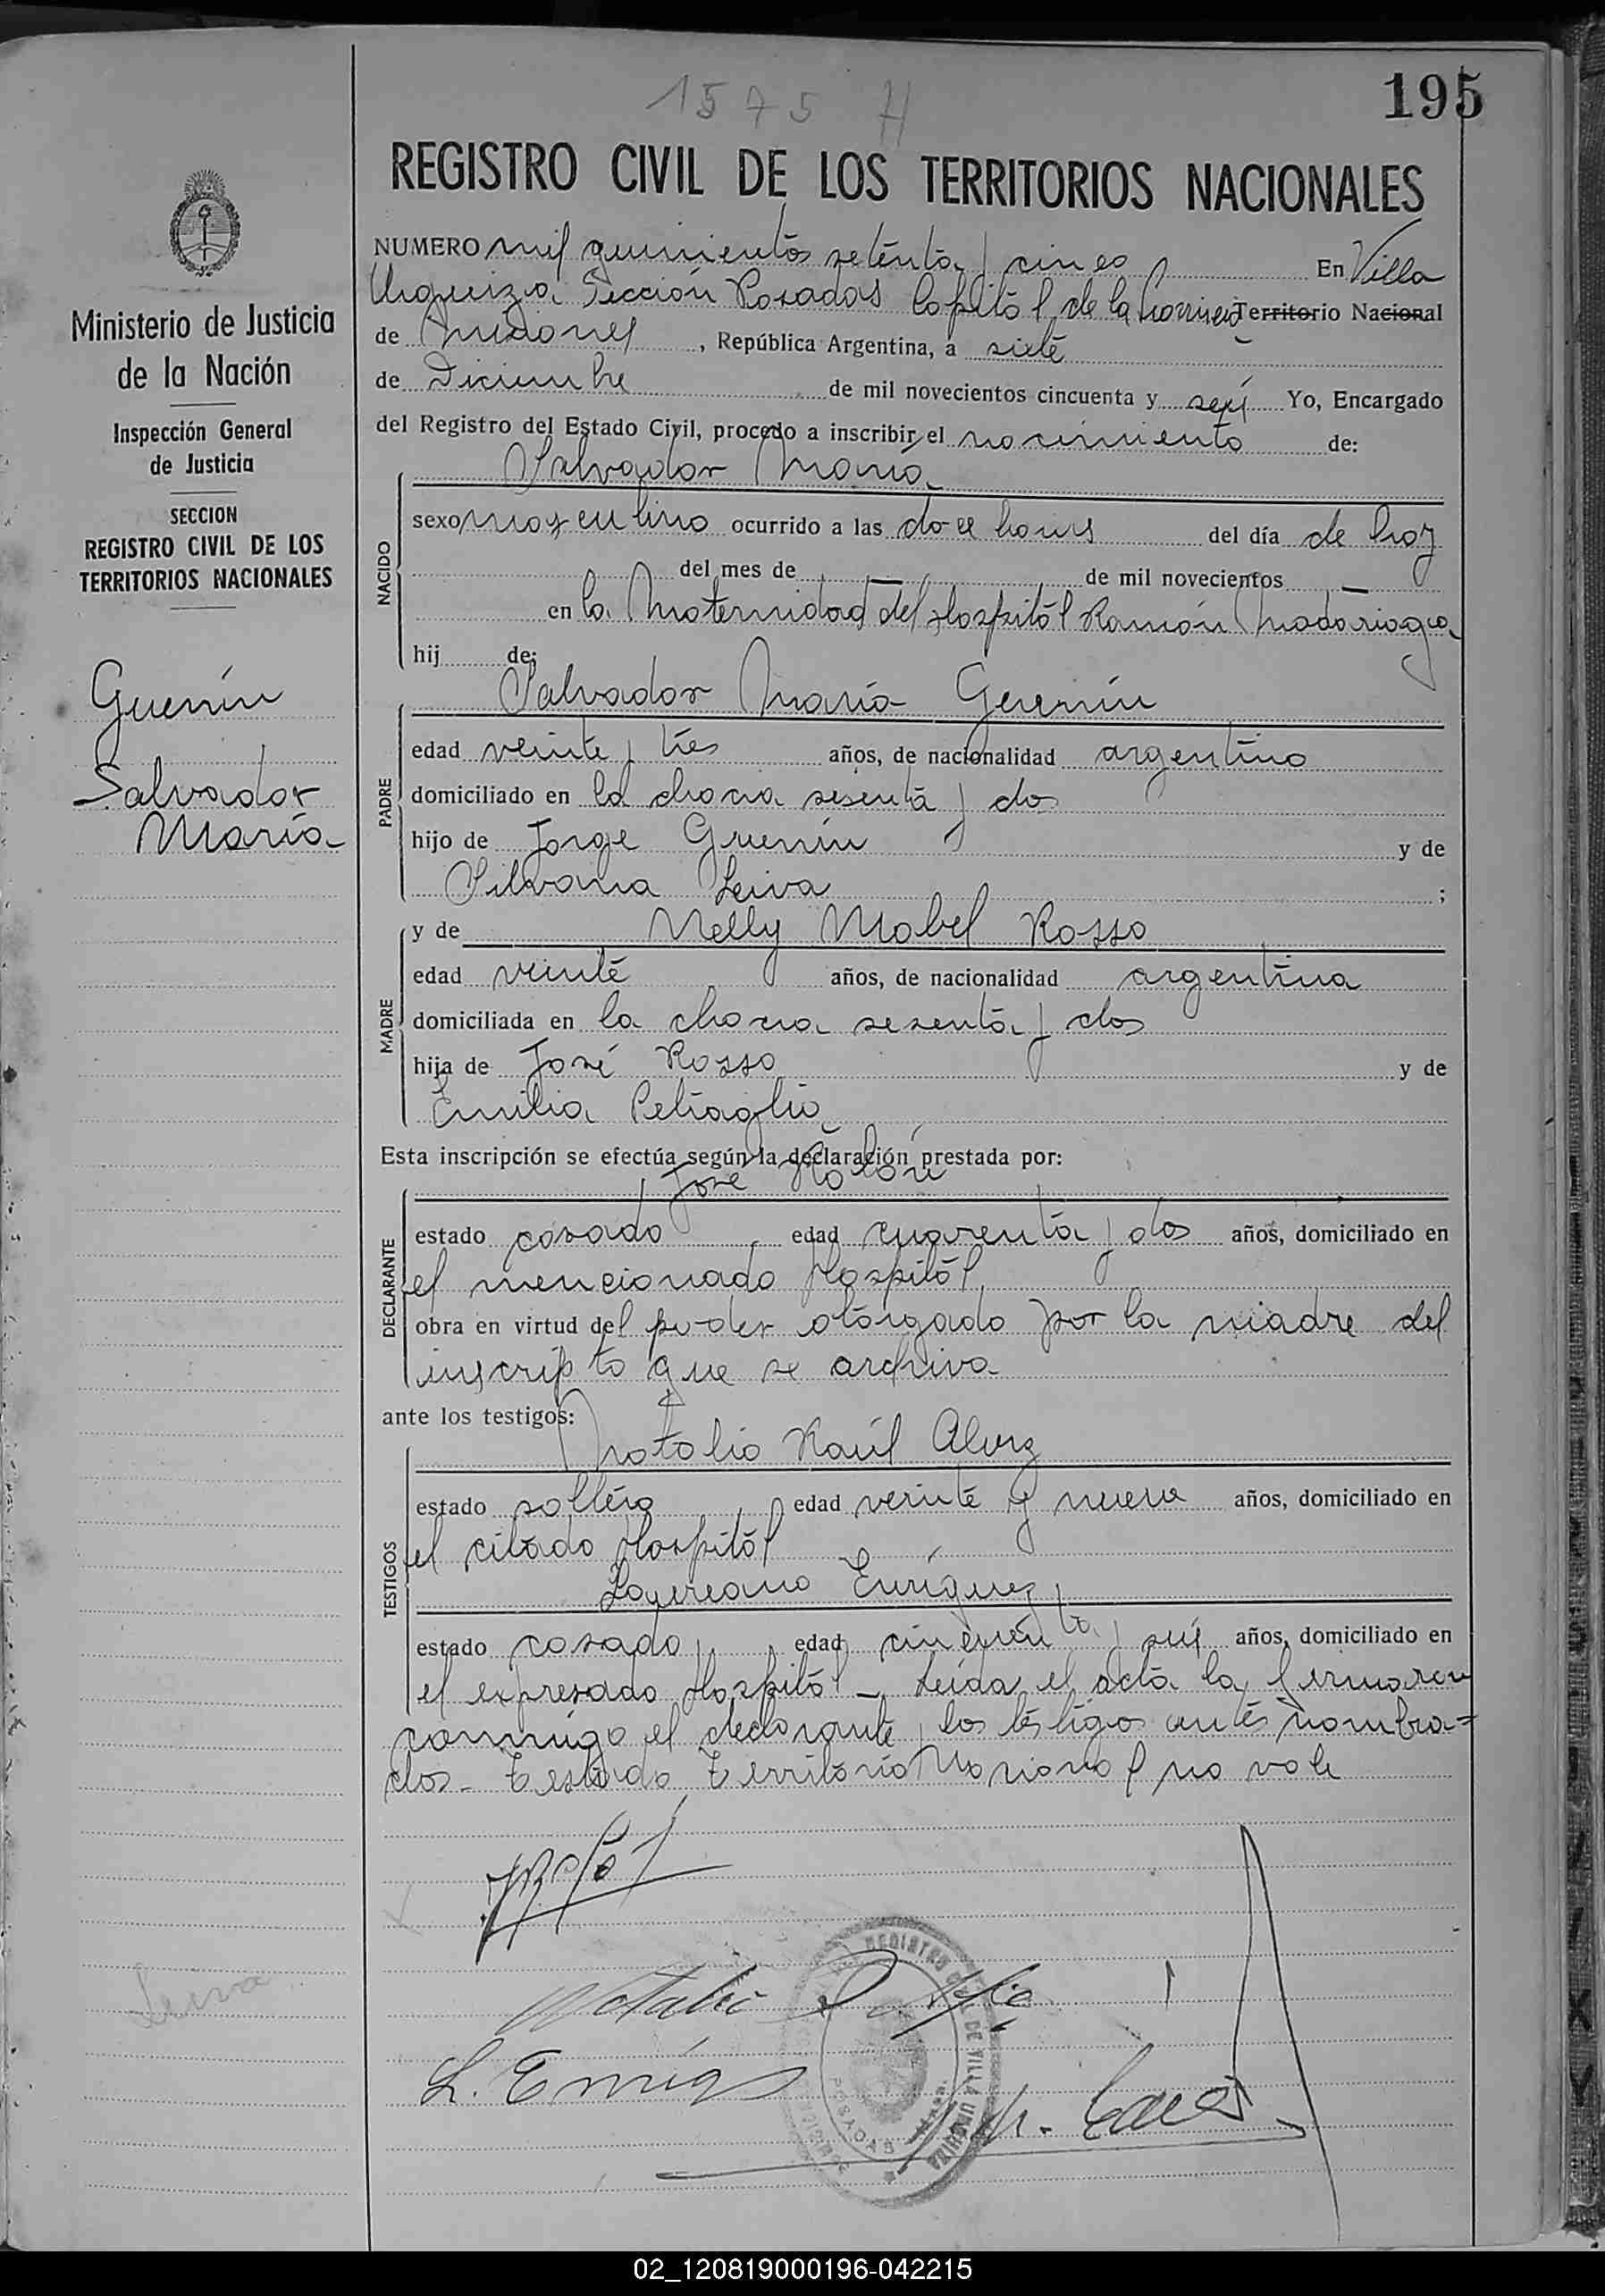 1575 H
195
REGISTRO CIVIL DE LOS TERRITORIOS NACIONALES
Ministerio de Justicia
de la Nación
Inspección General
de Justicia
SECCION
REGISTRO CIVIL DE LOS
TERRITORIOS NACIONALES
Guerrín
Salvador
María
Leiva
NUMERO mil quinientos setenta y cinco En Villa
Urquiza Sección Posadas Capital de la Provincia Territorio Nacional
de Misiones, República Argentina, a siete
de Diciembre de mil novecientos cincuenta y seis Yo, Encargado
del Registro del Estado Civil, procedo a inscribir el nacimiento de:
Salvador María
NACIDO
sexo masculino ocurrido a las doce horas del día de hoy
del mes de — de mil novecientos —
en la Maternidad del Hospital Ramón Madariaga
hij de:
Salvador María Guerrín
PADRE
edad veinte y tres años, de nacionalidad argentino
domiciliado en la chacra sesenta y dos
hijo de Jorge Guerrín y de
Silvana Leiva ;
y de Nelly Mabel Rosso
MADRE
edad veinte años, de nacionalidad argentina
domiciliada en la chacra sesenta y dos
hija de José Rosso y de
Emilia
Esta inscripción se efectúa según la declaración prestada por:
José Rolón
DECLARANTE
estado casado edad cuarenta y dos años, domiciliado en
el mencionado Hospital
obra en virtud del poder otorgado por la madre del
inscripto que se archiva
ante los testigos:
Natalio Raúl
TESTIGOS
estado soltero edad veinte y nueve años, domiciliado en
el citado Hospital
Laureano Enríquez
estado casado edad cincuenta y seis años, domiciliado en
el expresado Hospital – Leída el acta la firmaron
conmigo el declarante y los testigos antes nombra=
dos – Testado Territorio Nacional no vale
L. Enríq
REGISTRO DE VILLA URQUIZA
POSADAS
02_120819000196-042215